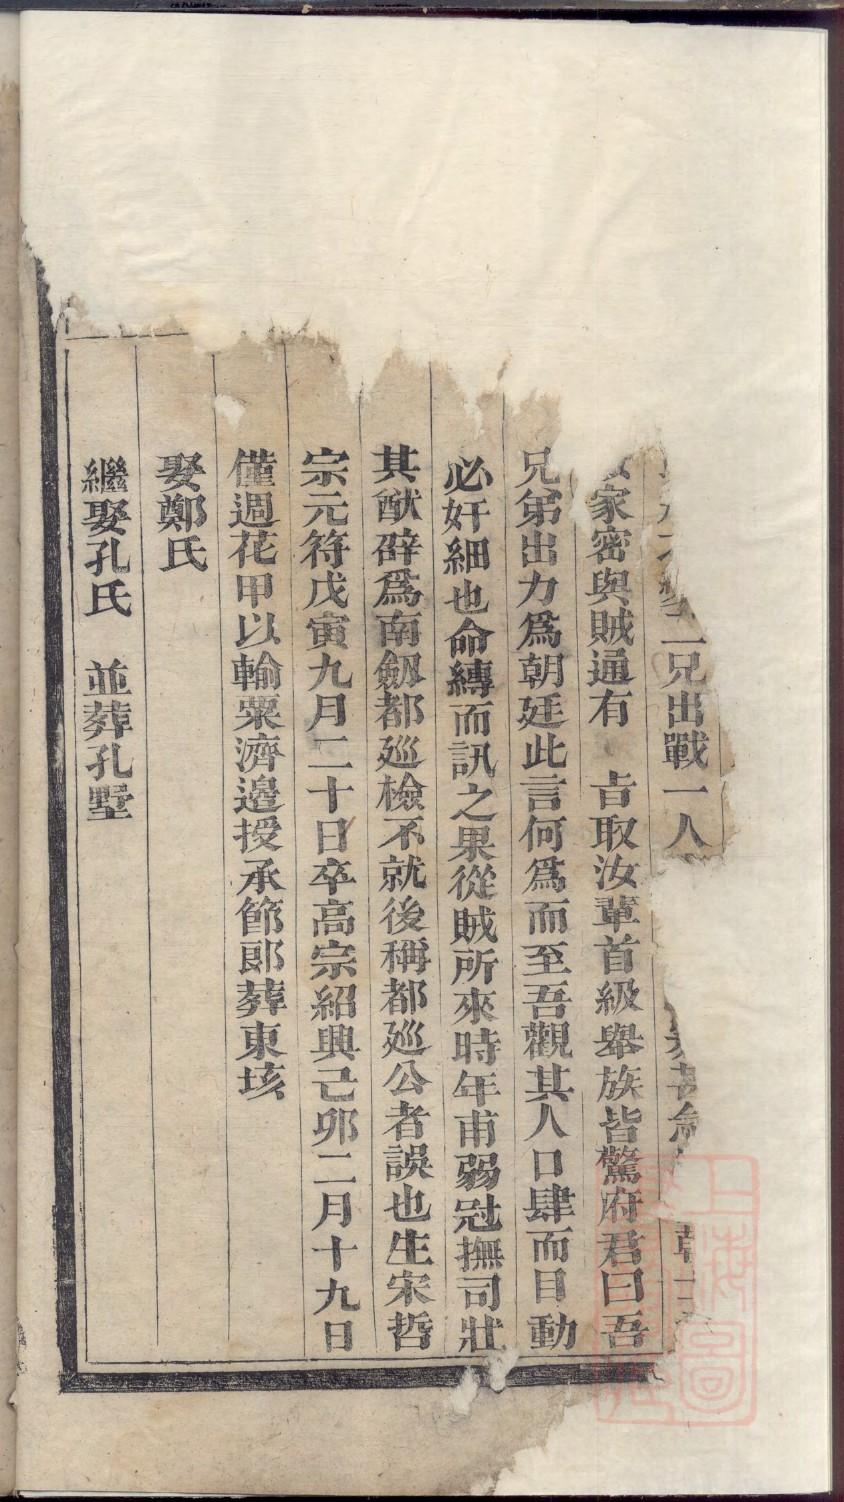 二兄出戰一人
家密與賊通有　㫖取汝輩首級舉族皆驚府君曰吾
兄弟出力爲朝廷此言何爲而至吾觀其人口肆而目動
必奸細也命縛而訊之果從賊所來時年甫弱冠撫司壯
其猷辟爲南劔都廵檢不就後稱都廵公者誤也生宋哲
宗元符戊寅九月二十日卒高宗紹興己卯二月十九日
僅週花甲以輸粟濟邊授承節郎葬東垓
娶鄭氏
繼娶孔氏　並葬孔墅
上海圖